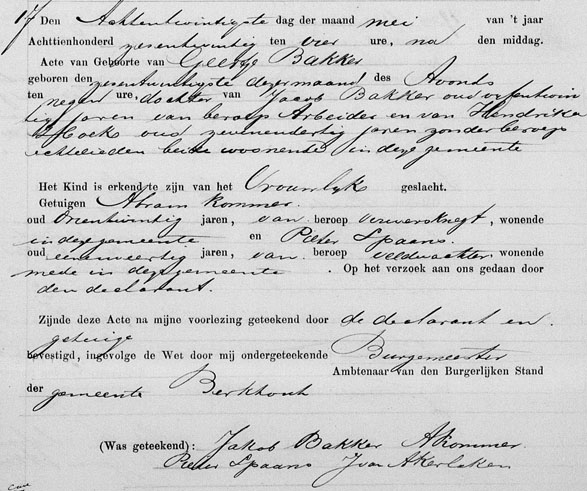 17 Den Achtentwintigste dag der maand mei van 't jaar
Achttienhonderd zesentwintig ten vier ure, na den middag.
Acte van Geboorte van Geertje Bakker
geboren den zesentwintigste dezer maand des Avonds
ten negen ure, dochter van Jacob Bakker oud vijfentwin
tig jaren van beroep Arbeider en van Hendrikje
Cock oud zevenendertig jaren zonder beroep
echtelieden beide woonende in deze gemeente
Het Kind is erkend te zijn van het Vrouwlyk geslacht.
Getuigen Abram Kommer.
oud Drientwintig jaren, van beroep verwersknegt, wonende
in deze gemeente en Pieter Spaans.
oud eenenveertig jaren, van beroep veldwachter, wonende
mede in deze gemeente. Op het verzoek aan ons gedaan door
den declarant.
Zijnde deze Acte na mijne voorlezing geteekend door de declarant en
getuige
bevestigd, ingevolge de Wet door mij ondergeteekende Burgemeester
Ambtenaar van den Burgerlijken Stand
der gemeente Berkhout
(Was geteekend): Jakob Bakker A Kommer.
Pieter Spaans J van Akerlaken